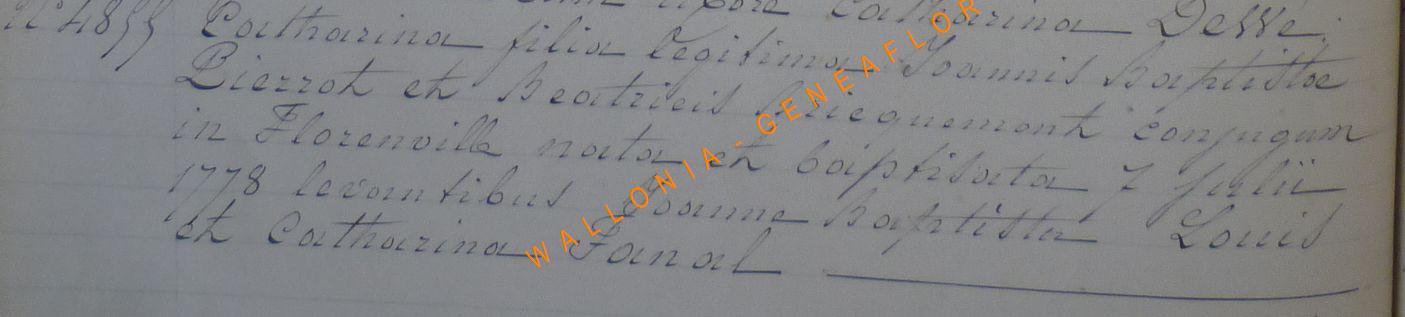 uxore Catharina Dessé.
N° 4855 Catharina filia legitima Joannis Baptistae
Pierrot et Beatricis conjugum
in Florenville nata et baptisata 7 Julii
1778 levantibus Joanne Baptista Louis
et Catharina Fanal
WALLONIA - GENEAFLOR